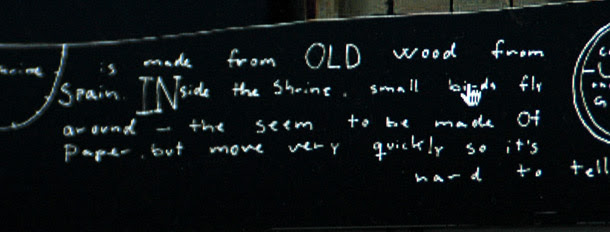 is made from OLD wood from
Spain. INside the Shrine, small birds fly
around - the seem to be made Of
Paper, but move very quickly so it's
hard to tell